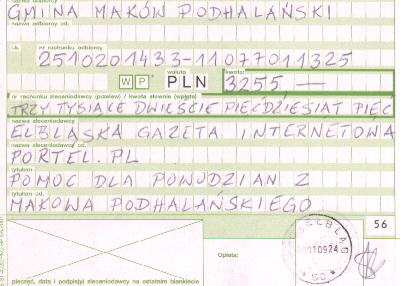 nazwa odbiorcy
GMINA MAKÓW PODHALAŃSKI
nazwa odbiorcy cd.
l.k. nr rachunku odbiorcy
2510201433-11077011325
waluta kwota:
W P PLN 3255 —
nr rachunku zleceniodawcy (przelew) / kwota słownie (wpłata)
TRZY TYSIĄCE DWIEŚCIE PIĘĆDZIESIĄT PIĘĆ
nazwa zleceniodawcy
ELBLĄSKA GAZETA INTERNETOWA
nazwa zleceniodawcy cd.
PORTEL.PL
tytułem
POMOC DLA POWODZIAN Z
tytułem cd.
MAKOWA PODHALAŃSKIEGO
56
ELBLĄG
Opłata:
pieczęć, data i podpis(y) zleceniodawcy na ostatnim blankiecie